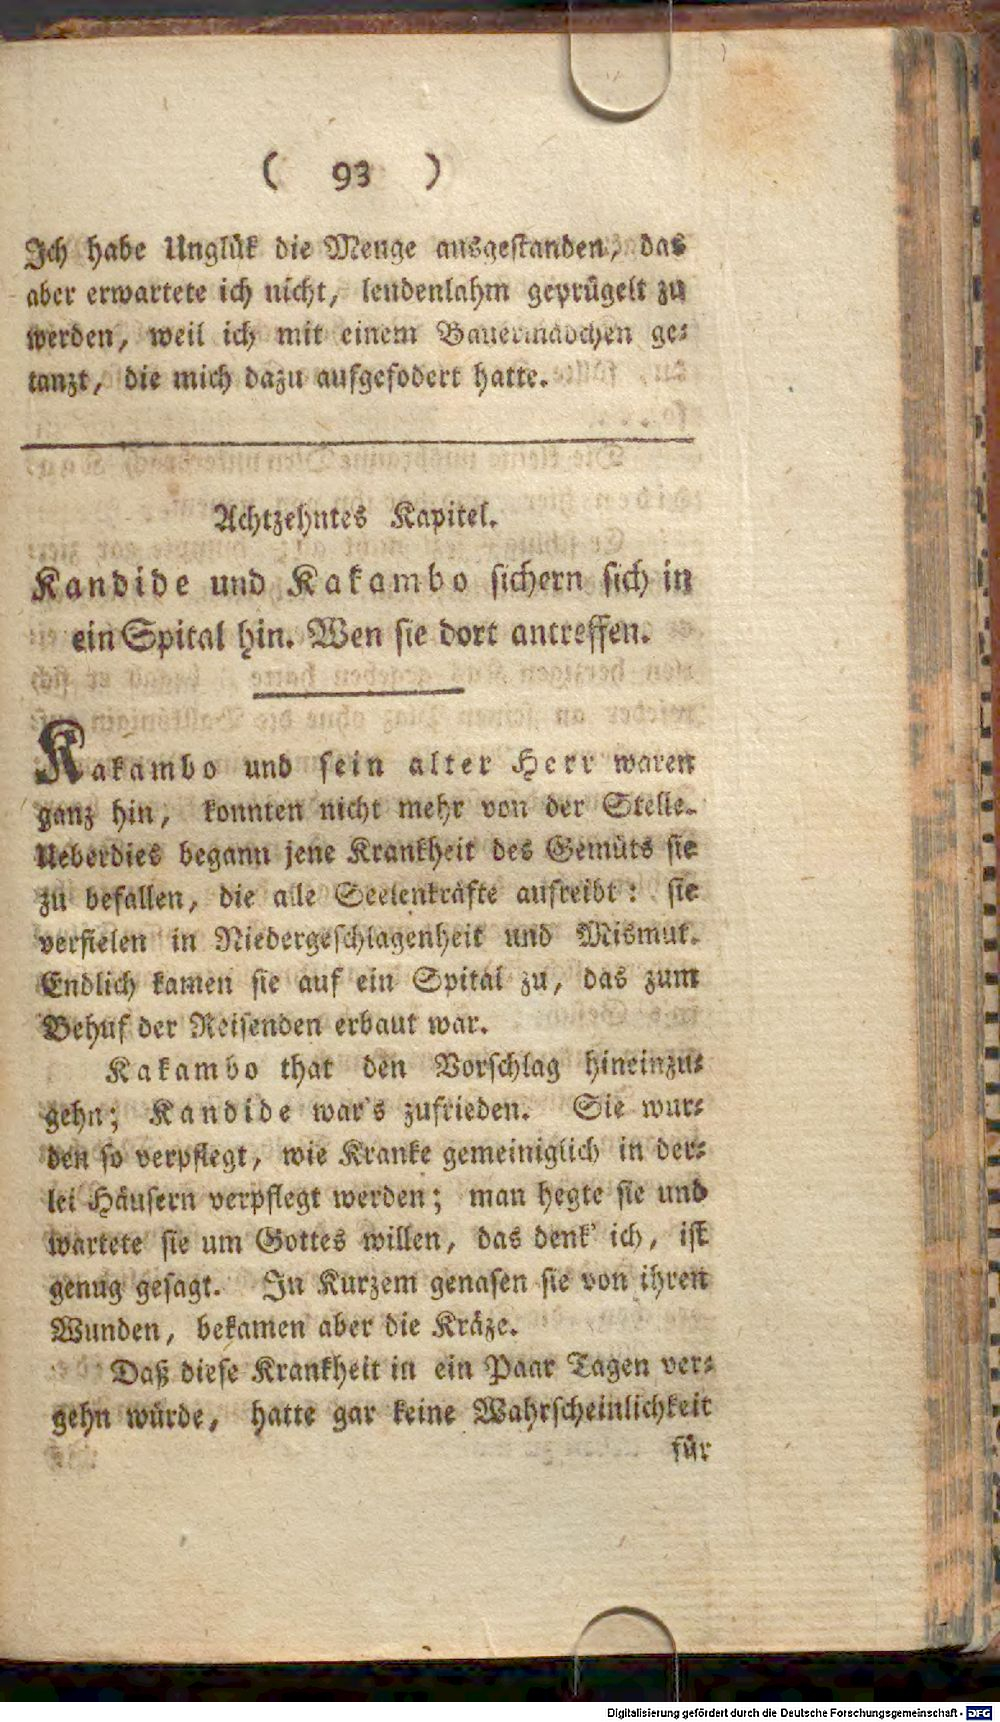 ( 93 )
Ich habe Unglük die Menge ausgestanden, das
aber erwartete ich nicht, lendenlahm geprügelt zu
werden, weil ich mit einem Bauermädchen ge-
tanzt, die mich dazu aufgefodert hatte.
Achtzehntes Kapitel.
Kandide und Kakambo sichern sich in
ein Spital hin. Wen sie dort antreffen.
Kakambo und sein alter Herr waren
ganz hin, konnten nicht mehr von der Stelle.
Ueberdies begann jene Krankheit des Gemüts sie
zu befallen, die alle Seelenkräfte aufreibt: sie
verfielen in Niedergeschlagenheit und Mismut.
Endlich kamen sie auf ein Spital zu, das zum
Behuf der Reisenden erbaut war.
Kakambo that den Vorschlag hineinzu-
gehn; Kandide war's zufrieden. Sie wur-
den so verpflegt, wie Kranke gemeiniglich in der-
lei Häusern verpflegt werden; man hegte sie und
wartete sie um Gottes willen, das denk' ich, ist
genug gesagt. In Kurzem genasen sie von ihren
Wunden, bekamen aber die Kräze.
Daß diese Krankheit in ein Paar Tagen ver-
gehn würde, hatte gar keine Wahrscheinlichkeit
für
Digitalisierung gefördert durch die Deutsche Forschungsgemeinschaft - DFG